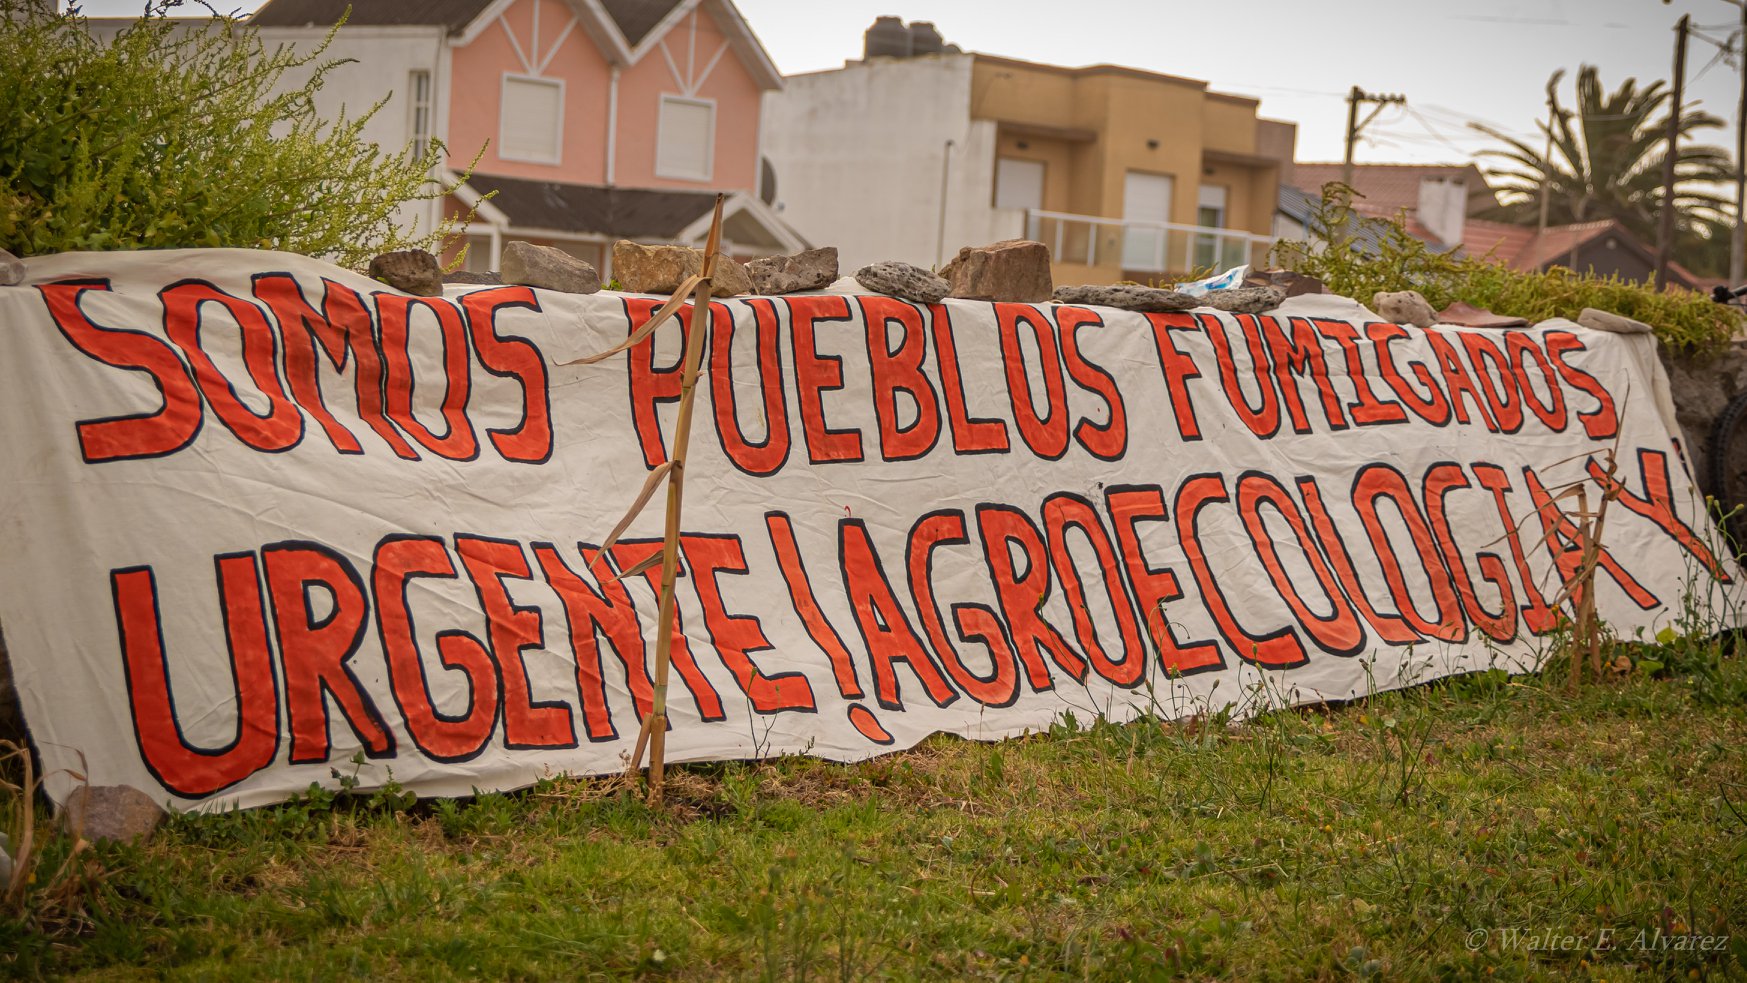 SOMOS PUEBLOS FUMIGADOS
URGENTE! AGROECOLOGIA Y
© Walter E. Alvarez